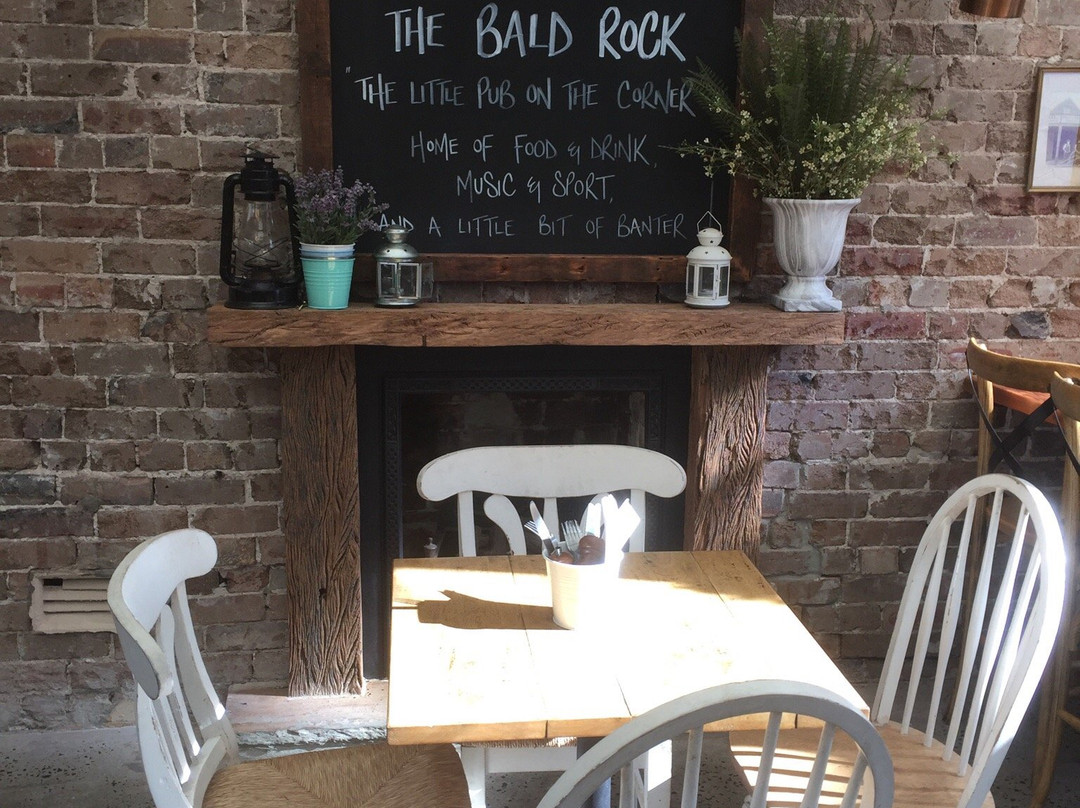 THE BALD ROCK
"THE LITTLE PUB ON THE CORNER
HOME OF FOOD & DRINK,
MUSIC & SPORT,
AND A LITTLE BIT OF BANTER